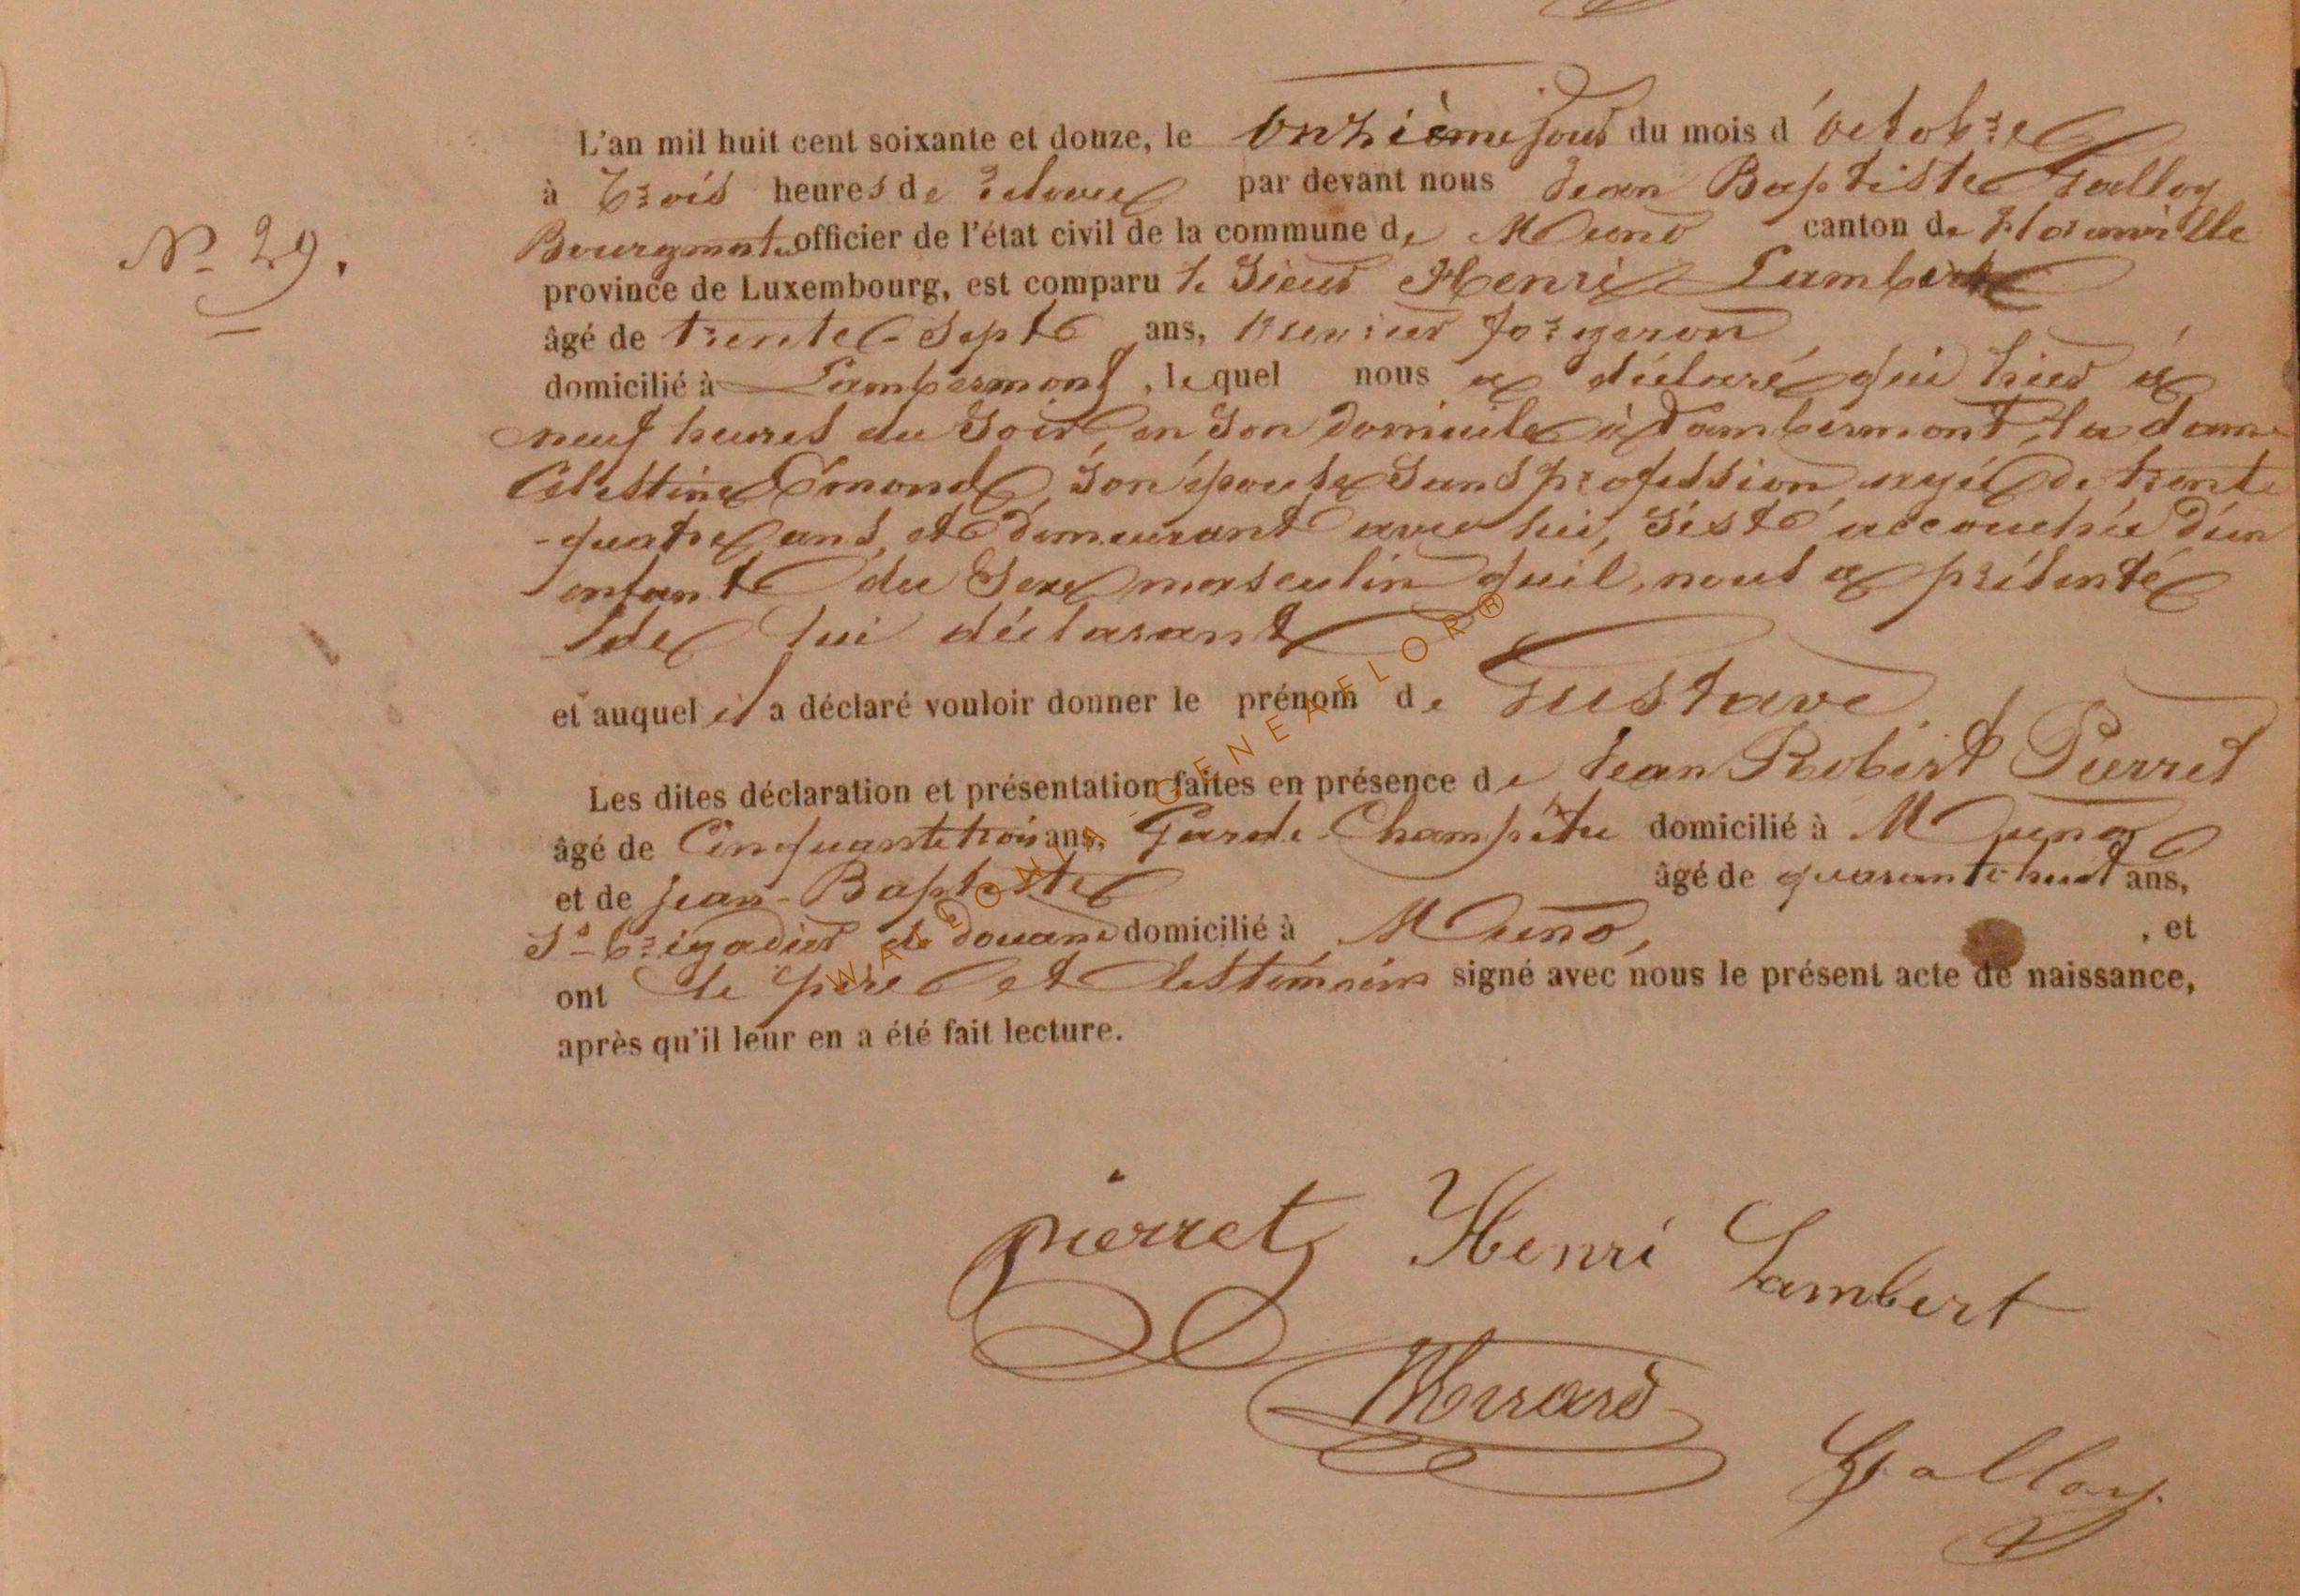 L'an mil huit cent soixante et douze, le onzième jour du mois d'octobre
à trois heures de relevée par devant nous Jean Baptiste Galloy
Bourgmestre officier de l'état civil de la commune de Muno canton de Florenville
province de Luxembourg, est comparu le Sieur Henri Lambert
âgé de trente-sept ans, ouvrier forgeron
domicilié à Lambermont, lequel nous a déclaré que hier à
neuf heures du Soir, en Son Domicile à Lambermont, la dame
Célestine Émond, Son épouse Sans profession, agée de trente
-quatre ans, et Demeurant avec lui, S'est accouchée d'un
enfant du Sexe masculin qu'il nous a présenté
de lui déclarant
et auquel il a déclaré vouloir donner le prénom de Gustave
Les dites déclaration et présentation faites en présence de Jean Robert Pierret
âgé de Cinquante trois ans, Garde Champêtre domicilié à Muno
et de Jean-Baptiste âgé de quarante-huit ans,
Ss-brigadier de Douane domicilié à Muno, , et
ont le père et les témoins signé avec nous le présent acte de naissance,
après qu'il leur en a été fait lecture.
No 29.
pierret Henri Lambert
Galloy
WALLONIA GENEAFLOR®